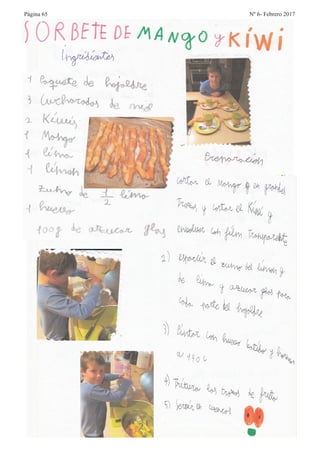 Página 65
Nº 6- Febrero 2017
SORBETE DE MANGO y KIWI
Ingredientes
1 paquete de hojaldre
3 cucharadas de miel
2 Kiwis
1 Mango
1 lima
1 limón
zumo de 1/2 lima
1 huevo
100g de azucar glas
Preparación
Cortar el mango en
trozos y cortar el Kiwi y
envolver con film transparente
2) esparcir el zumo del limón y
de lima y azucar glas para
cada parte del hojaldre
3) Pintar con huevo batido y hornear
a
4) Tritura los trozos de fruta
5)